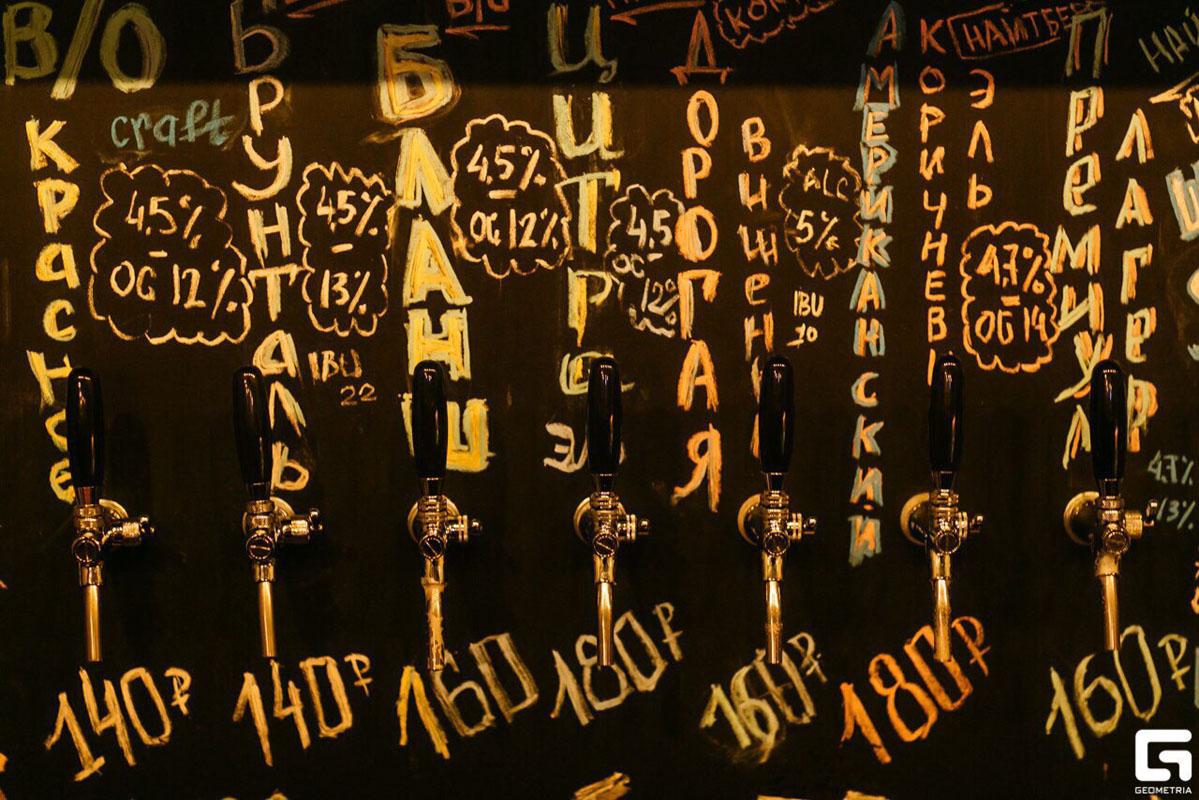 В/О
Красное
craft
4.5%
OG 12%
140₽
Брунталь
4.5%
13%
IBU
22
140₽
В/О
БЛАНШ
4.5%
OG 12%
160
Цитрус
ЭЛ
4.5
OG
12%
180₽
ДОРОГАЯ
Вишен
ALC
5%
IBU
10
160₽
АМЕРИКАНСКИЙ
КОРИЧНЕВЫ
ЭЛЬ
НАЙТБЕР
4.7%
OG 14
180₽
Премиум
ЛАГЕР
4.7%
13%
160₽
НАЙ
GEOMETRIA